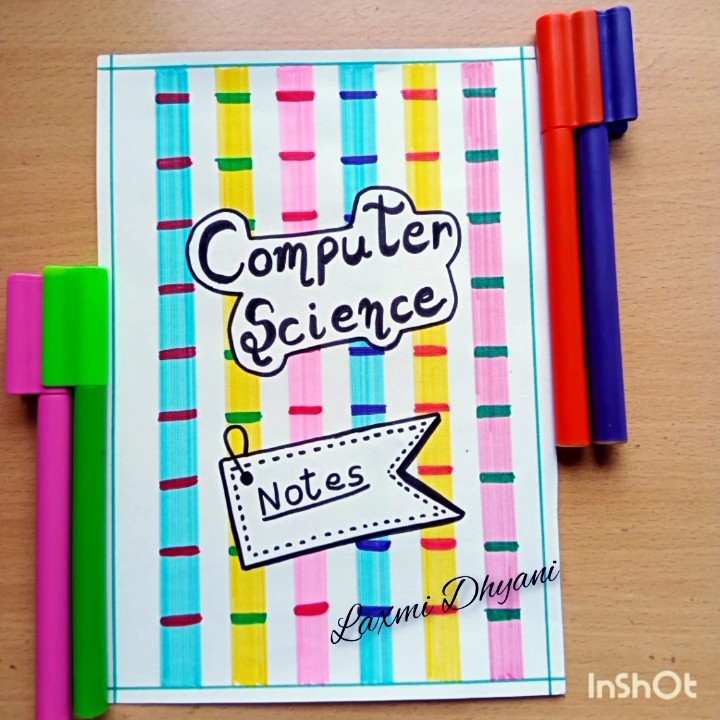 Computer
Science
Notes
Laxmi Dhyani
InShOt